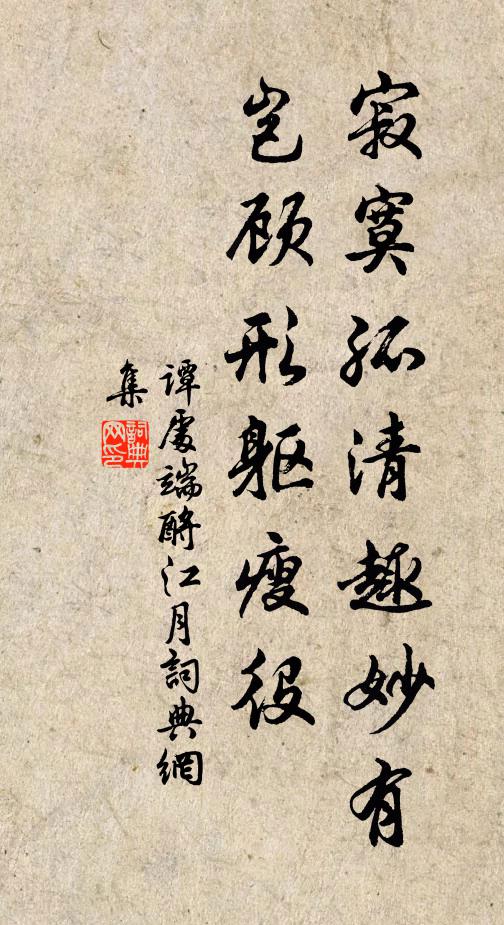 寂寞孤清趣妙有
岂顾形躯瘦役
谭處端酹江月詞典網
集
詞典网印